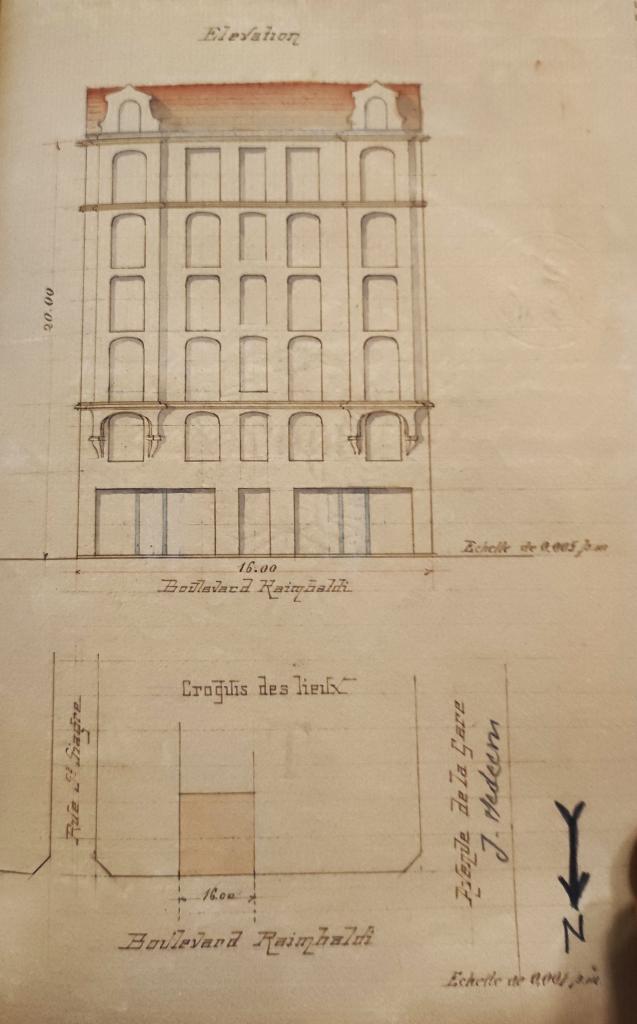 Elevation
20.00
Echelle de 0.005 p.m
16.00
Boulevard Raimbaldi
Croquis des lieux
Rue St Siagre
Avenue de la Gare
J. Medecin
16.00
Boulevard Raimbaldi
N
Echelle de 0,001 p.m